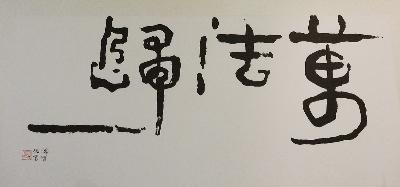 萬法歸一